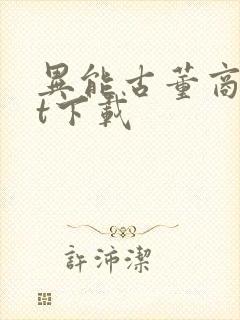 異能古董商
t下載
許沛潔